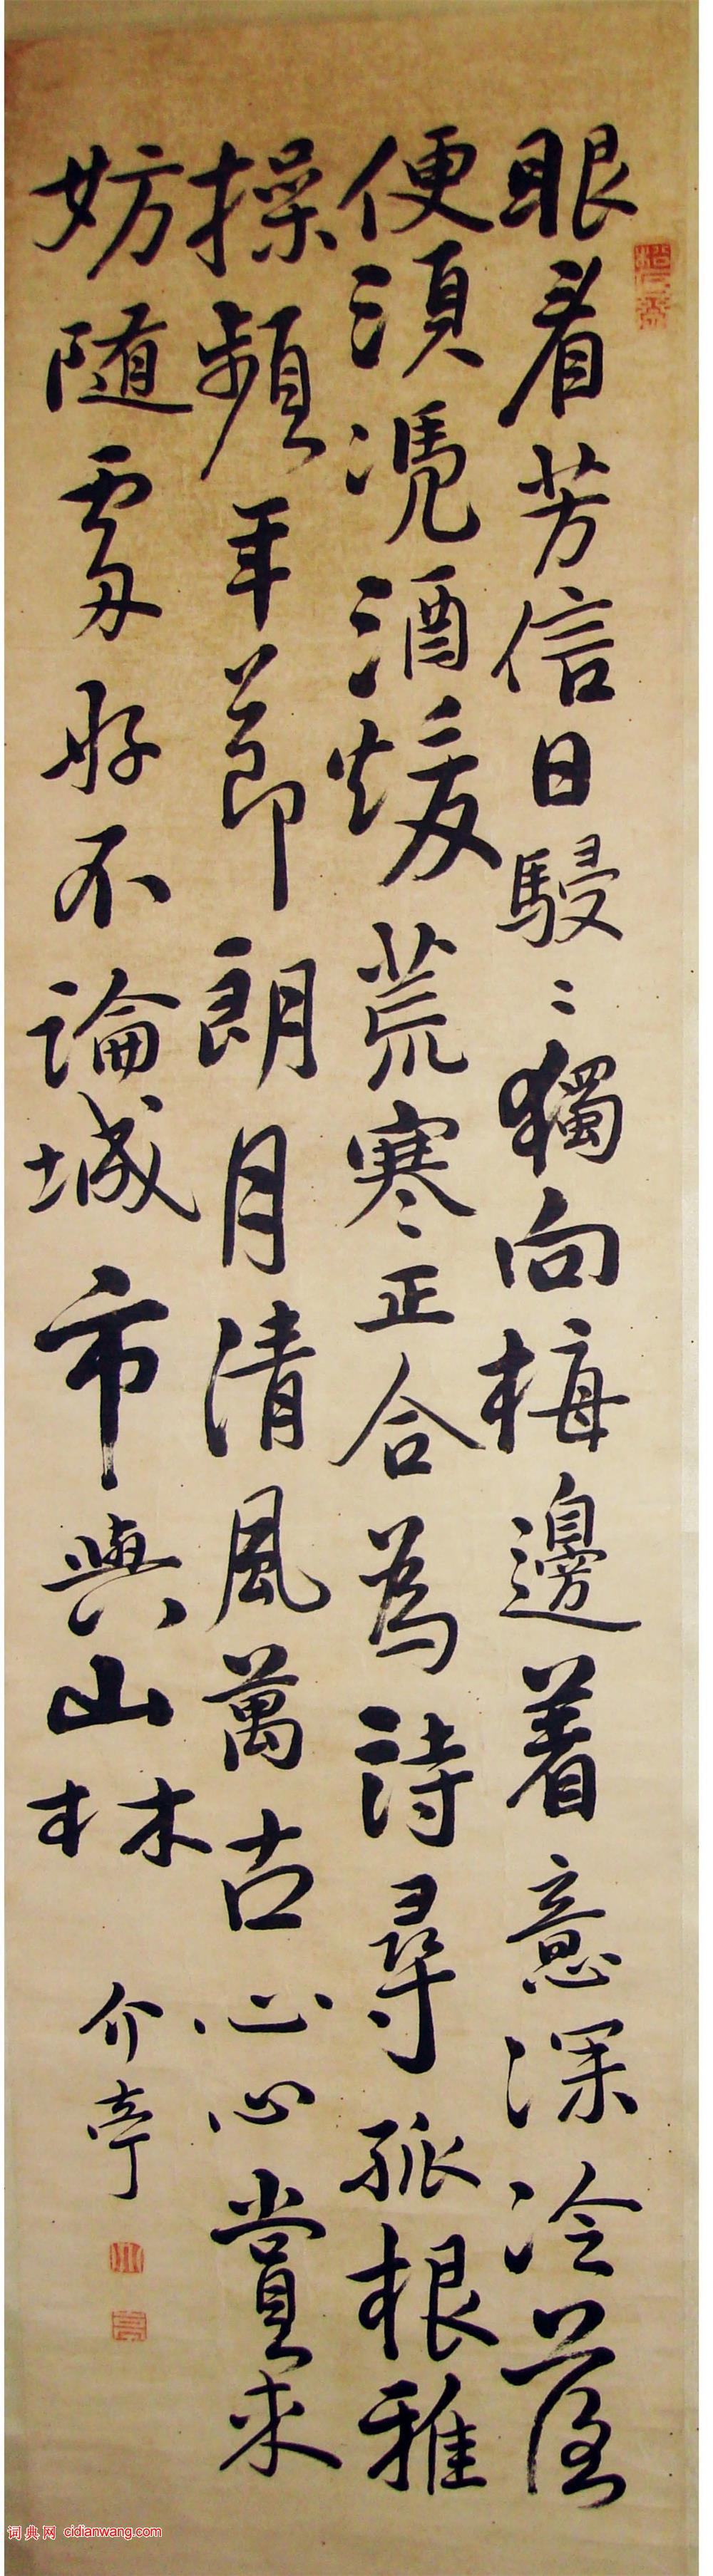 眼看芳信日駸〻獨向梅邊着意深冷落
便須凴酒煖荒寒正合為詩尋孤根雅
操頻年節朗月清風萬古心心賞來
妨随處好不論城市與山林
介亭
词典网 cidianwang.com